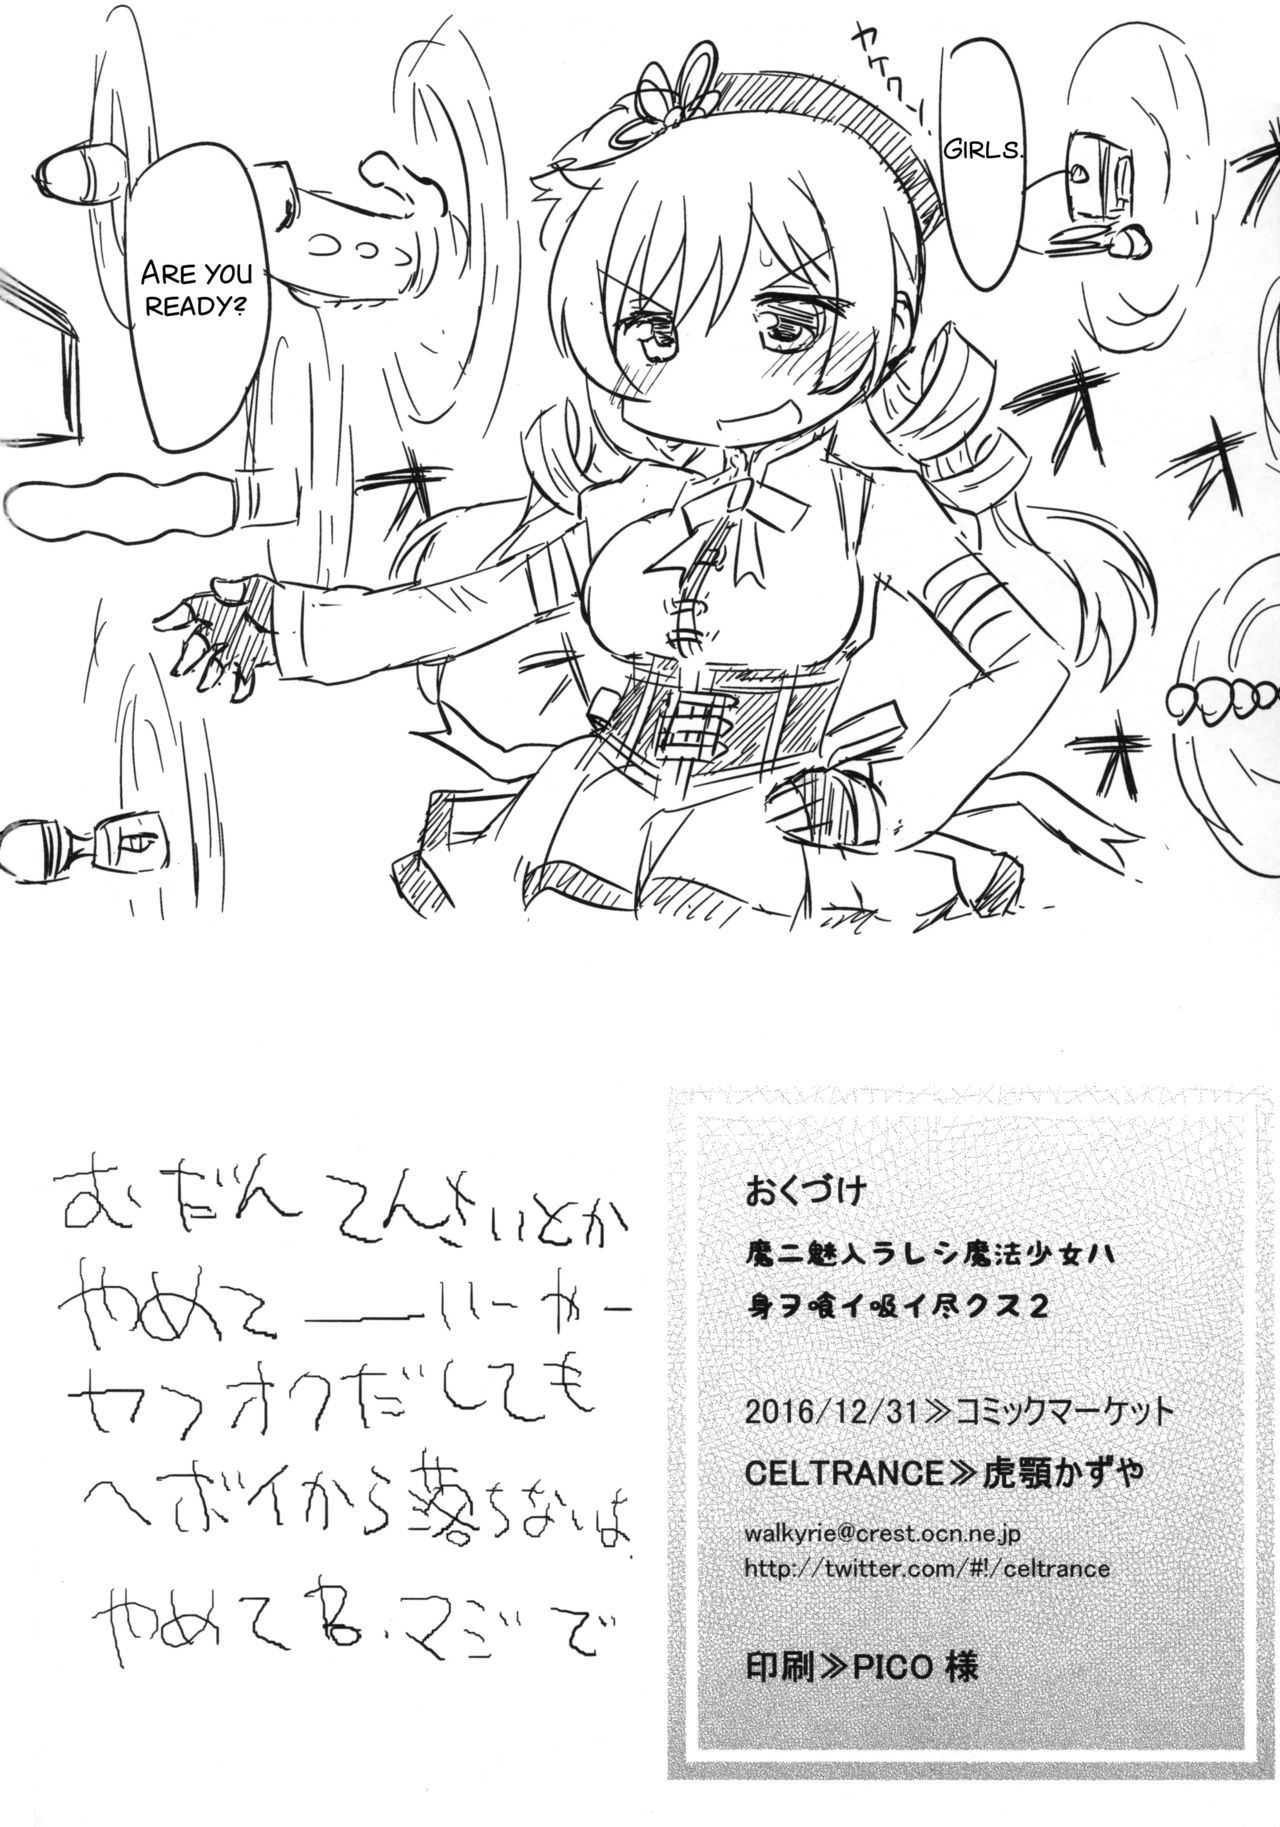 ヤケクソ!
GIRLS.
ARE YOU
READY?
むだんてんさいとか
やめて
ヤフオクだしても
ヘボイから落ちないは
やめてる.マジで
おくづけ
魔ニ魅入ラレシ魔法少女ハ
身ヲ喰イ吸イ尽クス2
2016/12/31≫コミックマーケット
CELTRANCE≫虎顎かずや
walkyrie@crest.ocn.ne.jp
http://twitter.com/#!/celtrance
印刷≫PICO 様